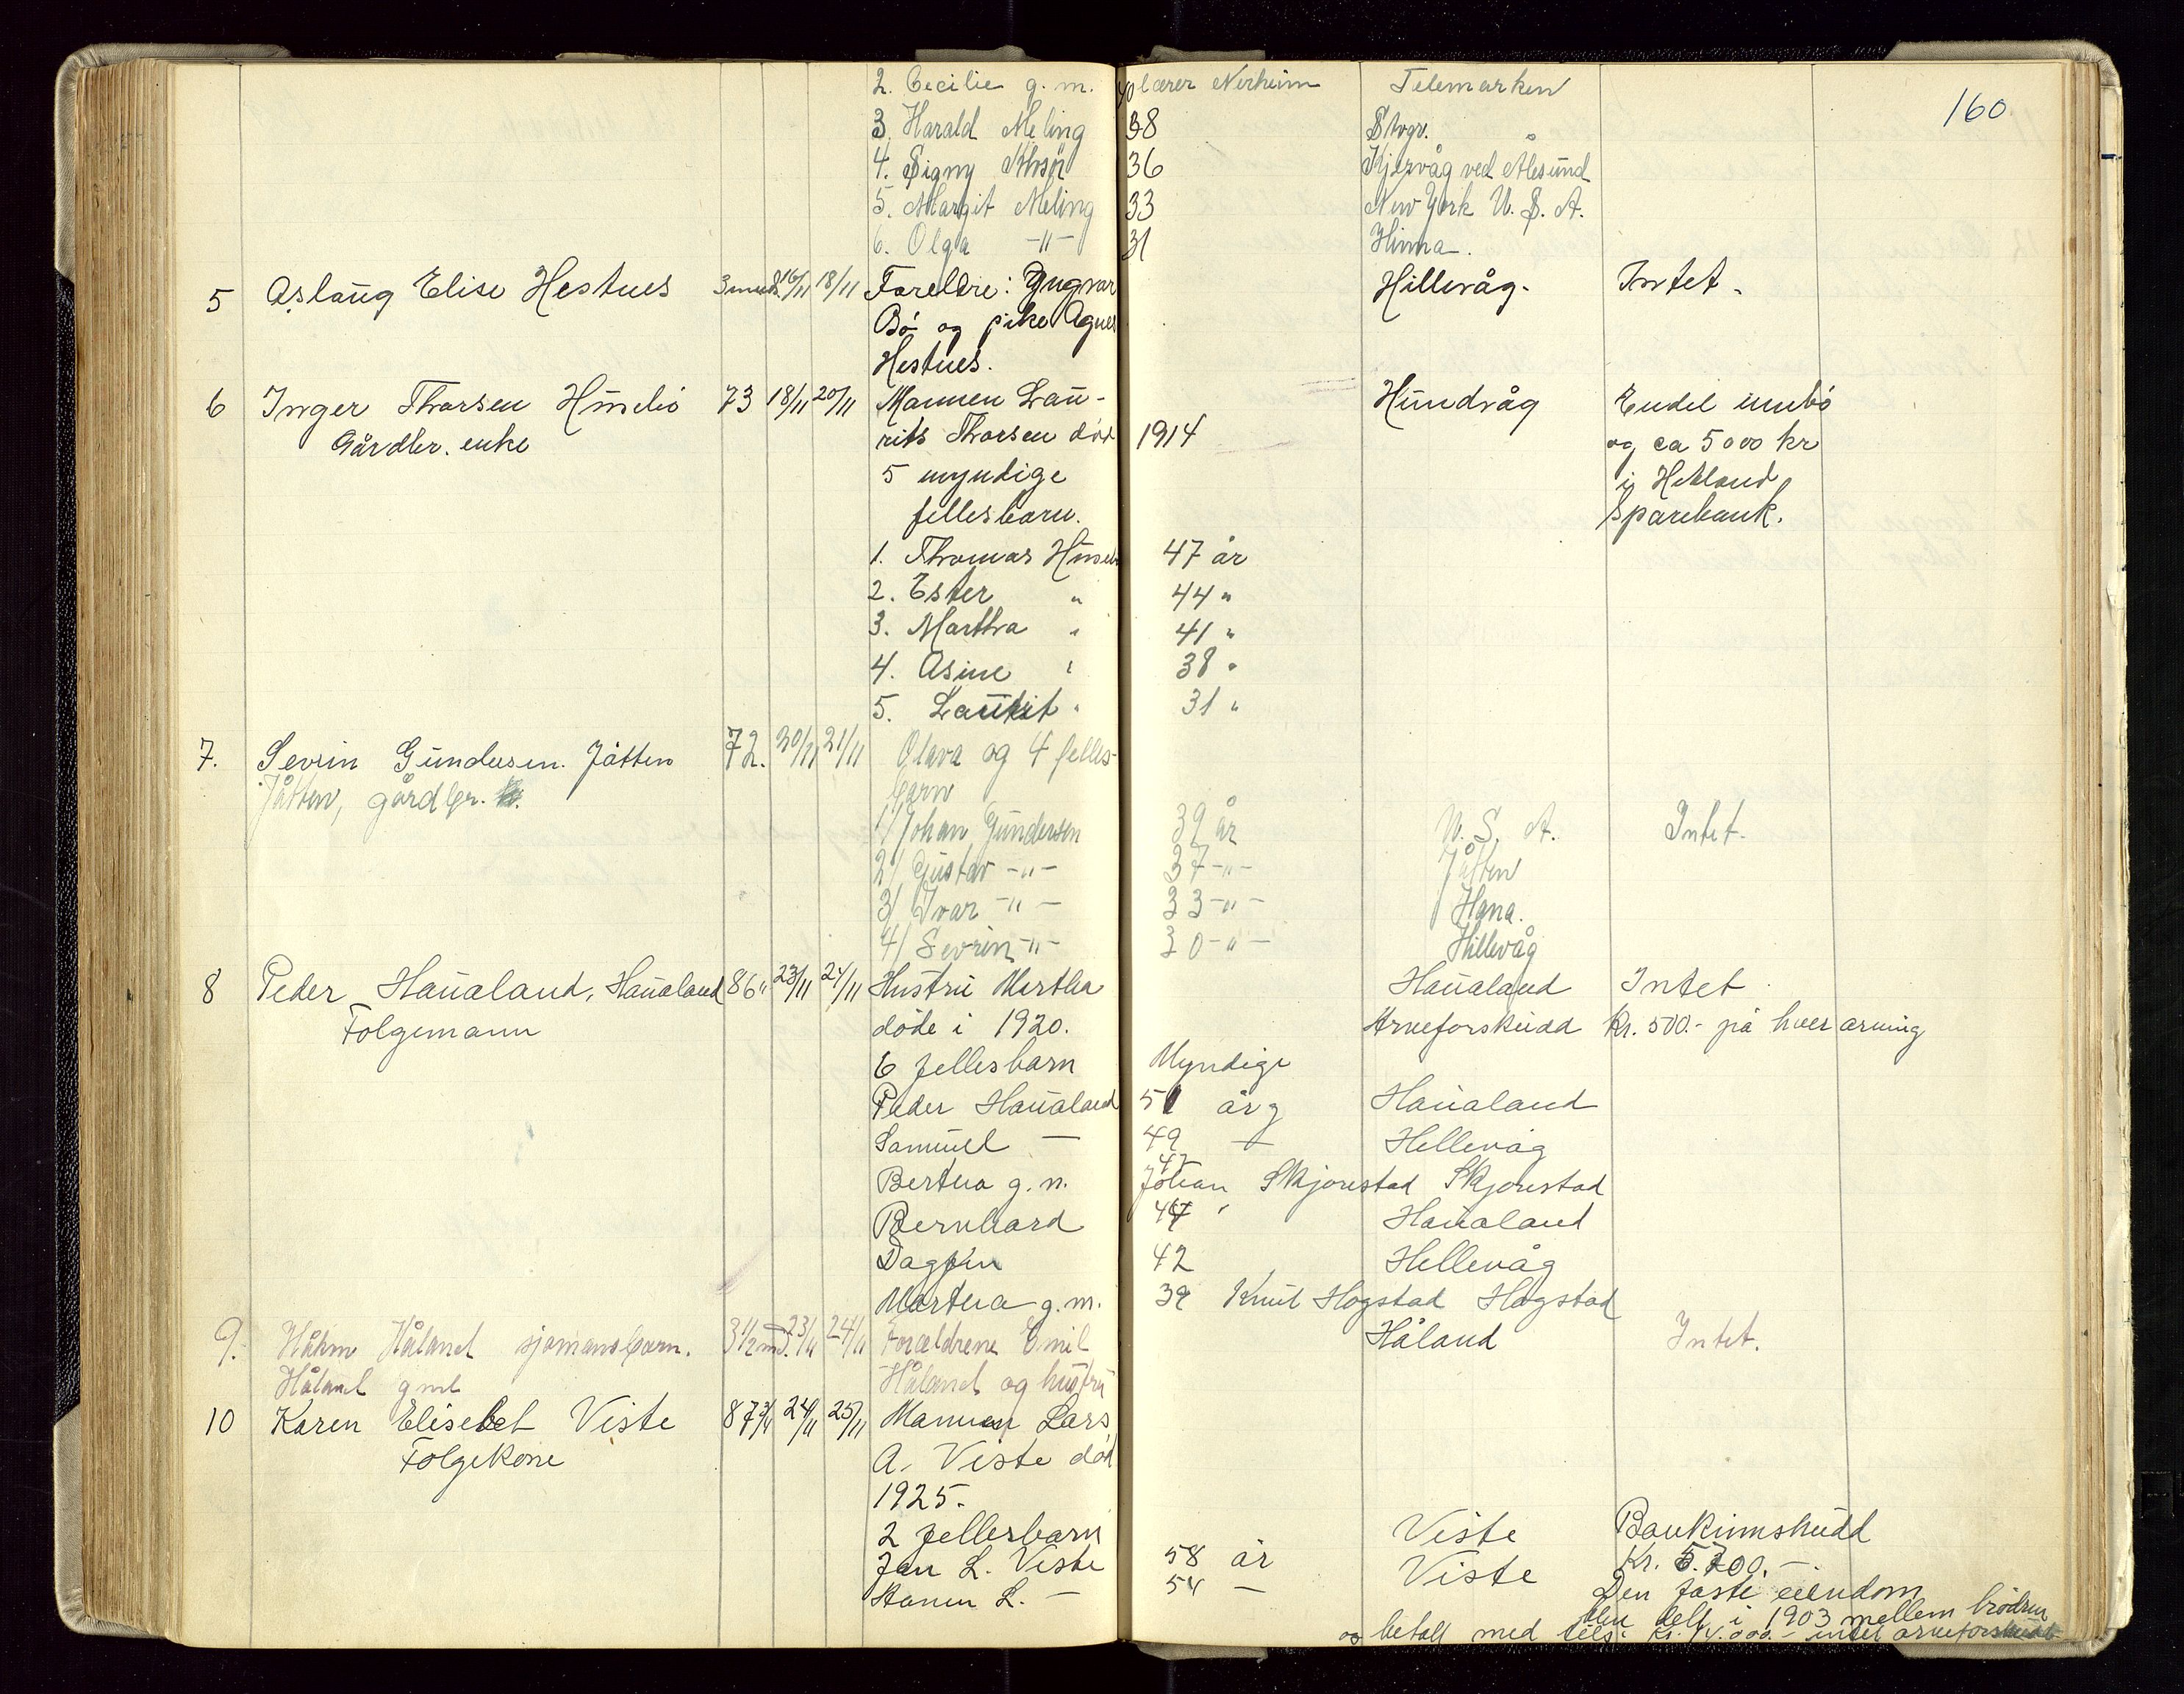 160
2. Cecilie g. m. 40 lærer Nerheim Telemarken
3. Harald Meling 38 Stvgr.
4. Signy 36 Kjervåg ved Ålesund
5. Margit Meling 33 New York U. S. A.
6. Olga -"- 31 Hinna.
5 Aslaug Elise Hestnes 3 mnd. 16/11 18/11 Foreldre: Yngvar Hillevåg. Intet.
Bö og pike Agnes
Hestnes.
6 Inger Thorsen Husebö 73 18/11 20/11 Mannen Lau- Hundvåg Endel innbö
Gårdbr. enke rits Thorsen död 1914 og ca 5000 kr
5 myndige i Hetland
fellesbarn. Sparebank.
1. Thomas Husebö 47 år
2. Ester " 44 "
3. Martha " 41 "
4. Asine " 38 "
5. Laurit " 31 "
7. Sevrin Gundersen. Jåtten 72. 20/11 21/11 Olava og 4 felles-
Jåtten, gårdbr. barn
1/ Johan Gundersen 39 år U. S. A. Intet.
2/ Gustav -"- 37 -"- Jåtten
3/ Ivar -"- 33 -"- Hana.
4/ Sevrin -"- 30 -"- Hillevåg
8 Peder Haualand, Haualand 86 " 23/11 24/11 Hustru Martha Haualand Intet
Folgemann döde i 1920. Arveforskudd Kr. 500.- på hver arving
6 fellesbarn Myndige
Peder Haualand 51 årg Haualand
Samuel — 49 — Hellevåg
Bertha g. m. 47 Johan Skjørestad Skjørestad
Bernhard 44 " Haualand
Dagfin 42 Hellevåg
Martha g. m. 39 Knut Hogstad Hogstad
9. Håland sjömansbarn. 3 1/2 md. 23/11 24/11 Forældrene Emil Håland Intet.
Håland gml Håland og hustru
10 Karen Elisebet Viste 87 24/11 25/11 Mannen Lars
Folgekone A. Viste död
1925.
2 fellesbarn Viste Bankinnskudd
Jan L. Viste 58 år Viste Kr. 5.700.-
L. — 54 — Den faste eiendom
blev delt i 1903 mellem brödrene
og betalt med intet arveforskudd